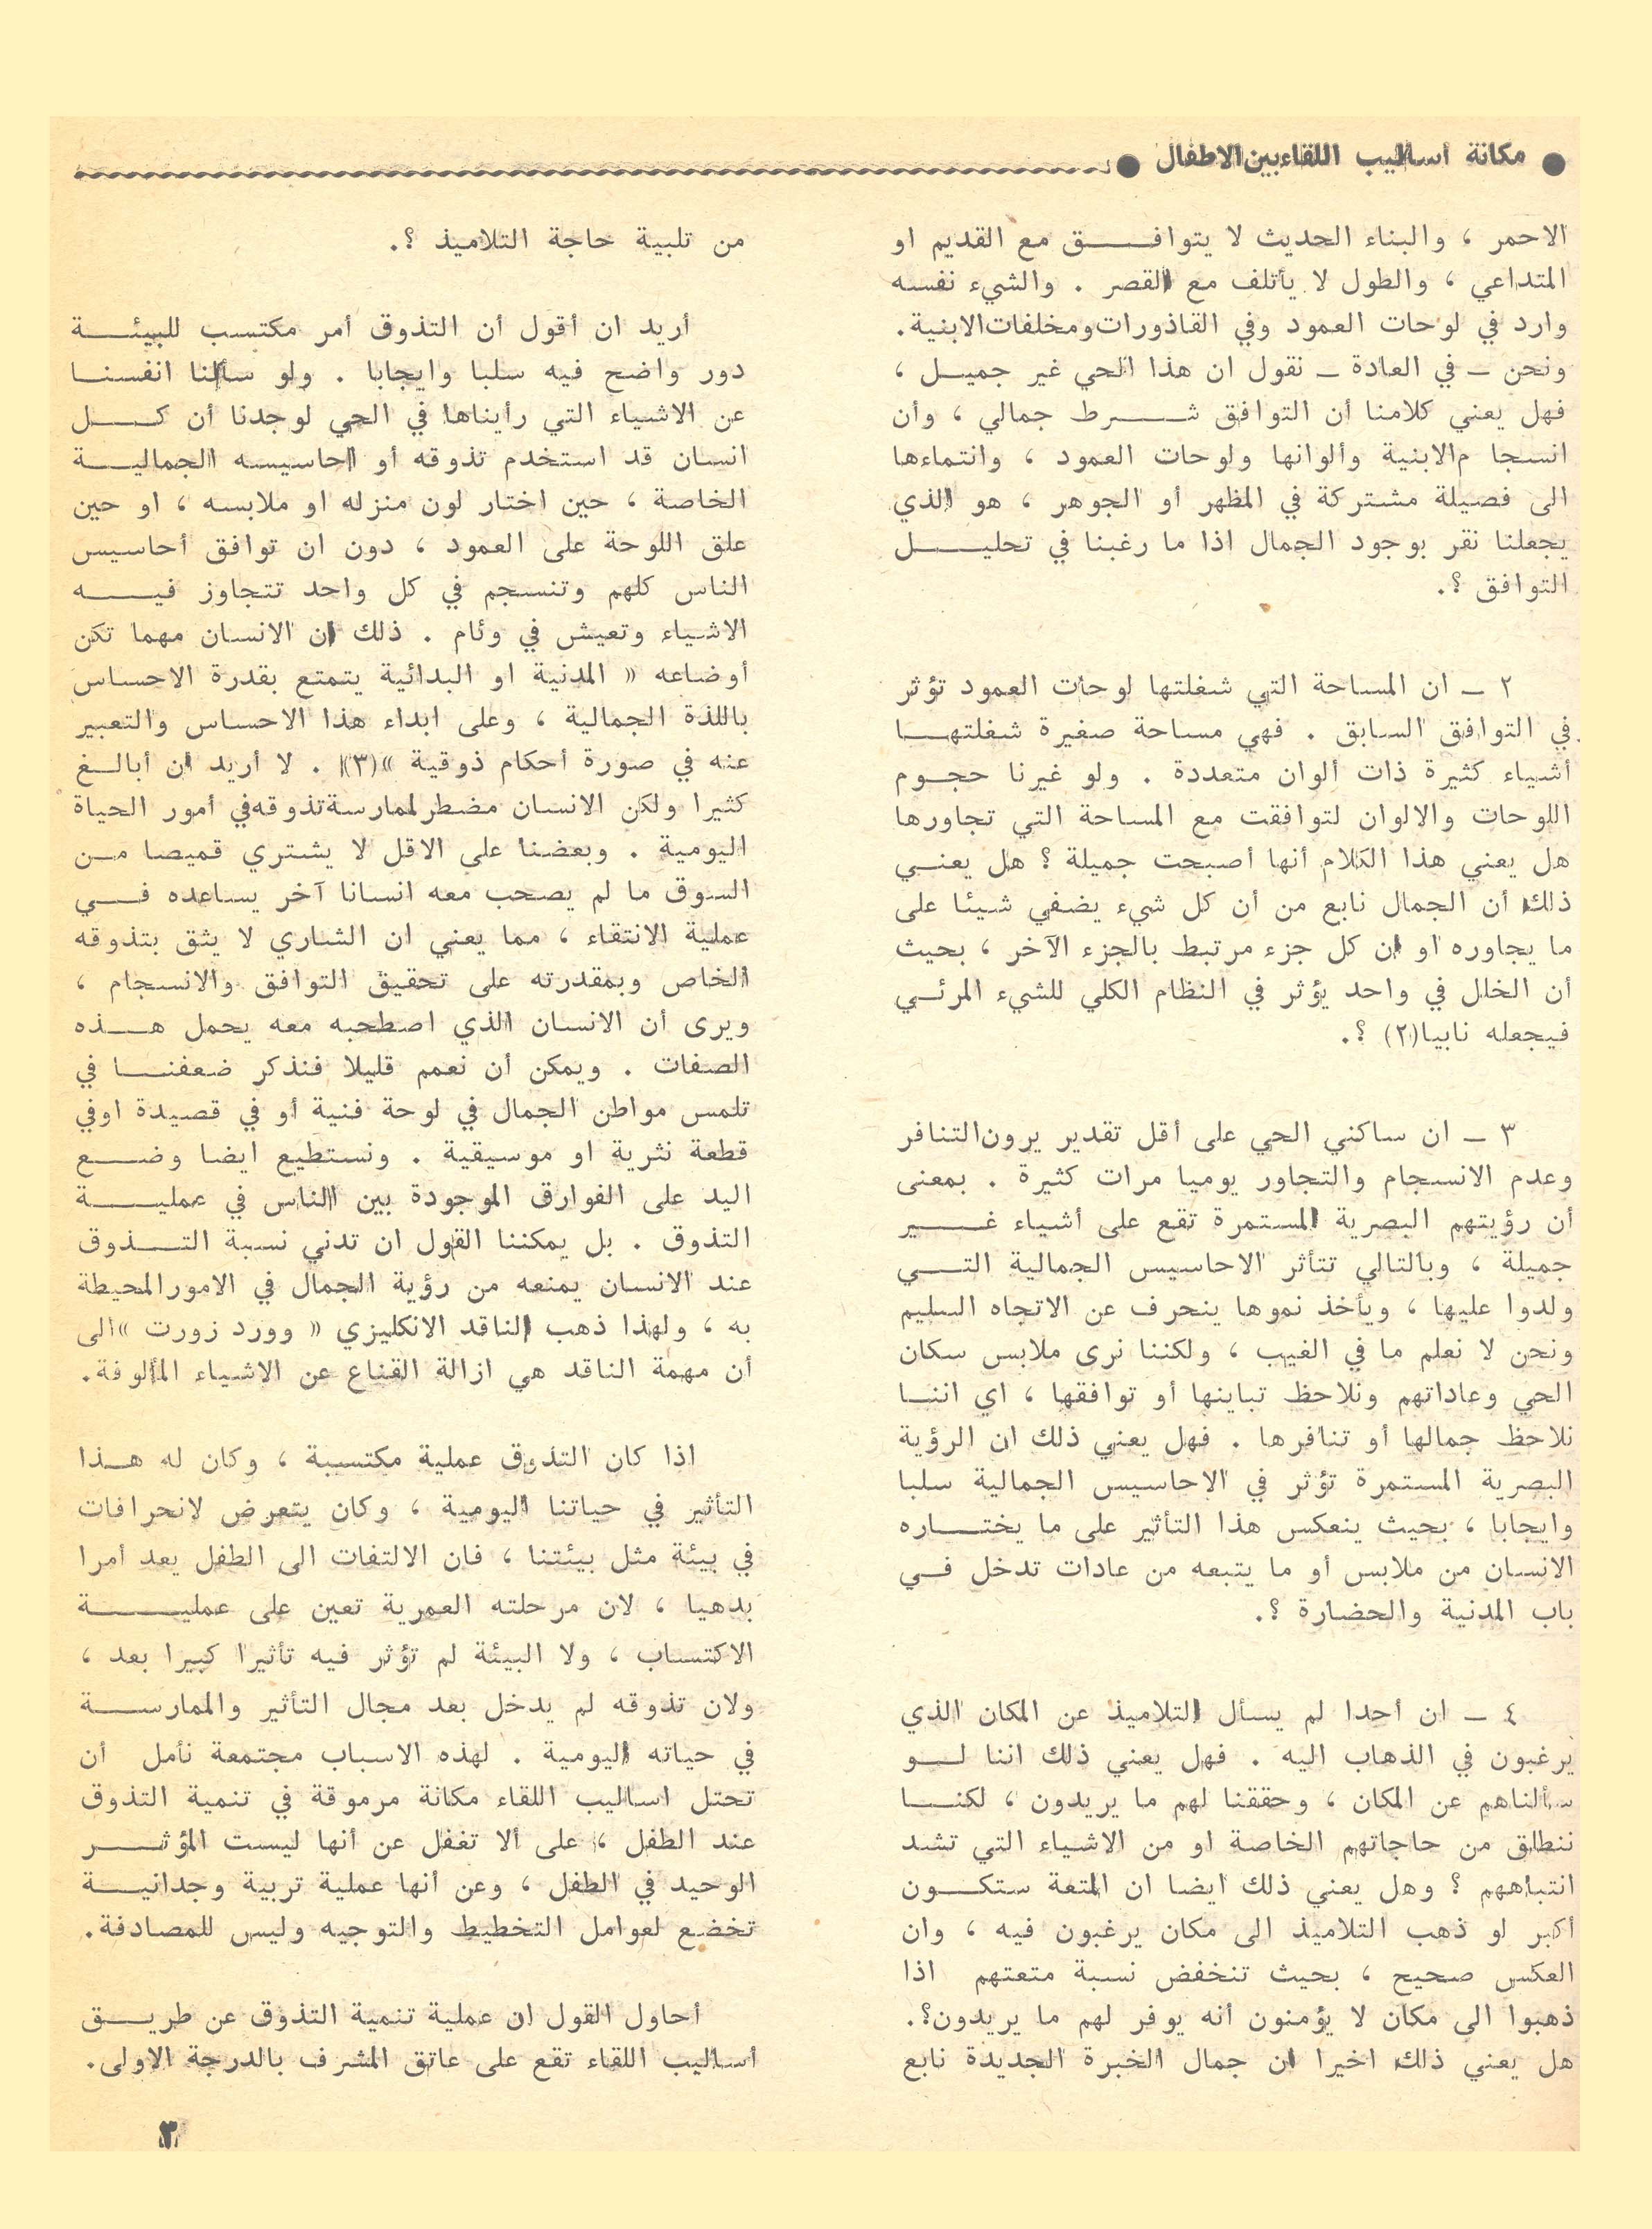 ● مكانة أساليب اللقاء بين الاطفال ●
الاحمر ، والبناء الحديث لا يتوافـــــق مع القديم او
المتداعي ، والطول لا يأتلف مع القصر . والشيء نفسه
وارد في لوحات العمود وفي القاذورات ومخلفات الابنية.
ونحن ــ في العادة ــ نقول ان هذا الحي غير جميـل ،
فهل يعني كلامنا أن التوافق شـــــرط جمالي ، وأن
انسجا م الابنية وألوانها ولوحات العمود ، وانتماءها
الى فصيلة مشتركة في المظهر أو الجوهر ، هو الذي
يجعلنا نقر بوجود الجمال اذا ما رغبنا في تحليـــــل
التوافق ؟.
٢ ــ ان المساحة التي شغلتها لوحات العمود تؤثر
في التوافق السابق . فهي مساحة صغيرة شغلتهـــا
أشياء كثيرة ذات ألوان متعددة . ولو غيرنا حجـوم
اللوحات والالوان لتوافقت مع المساحة التي تجاورها
هل يعني هذا الكلام أنها أصبحت جميلة ؟ هل يعنـي
ذلك أن الجمال نابع من أن كل شيء يضفي شيئا على
ما يجاوره او ان كل جزء مرتبط بالجزء الآخر ، بحيث
أن الخلل في واحد يؤثر في النظام الكلي للشيء المرئـي
فيجعله نابيا(٢) ؟.
٣ ــ ان ساكني الحي على أقل تقدير يرون التنافر
وعدم الانسجام والتجاور يوميا مرات كثيرة . بمعنى
أن رؤيتهم البصرية المستمرة تقع على أشياء غــــير
جميلة ، وبالتالي تتأثر الاحاسيس الجمالية التـــي
ولدوا عليها ، ويأخذ نموها ينحرف عن الاتجاه السليم
ونحن لا نعلم ما في الغيب ، ولكننا نرى ملابس سكان
الحي وعاداتهم ونلاحظ تباينها أو توافقها ، اي اننـا
نلاحظ جمالها أو تنافرها . فهل يعني ذلك ان الرؤية
البصرية المستمرة تؤثر في الاحاسيس الجمالية سلبا
وايجابا ، بحيث ينعكس هذا التأثير على ما يختـــاره
الانسان من ملابس أو ما يتبعه من عادات تدخل فـي
باب المدنية والحضارة ؟.
٤ ــ ان أحدا لم يسأل التلاميذ عن المكان الذي
يرغبون في الذهاب اليه . فهل يعني ذلك اننا لـــو
سألناهم عن المكان ، وحققنا لهم ما يريدون ، لكنـــا
ننطلق من حاجاتهم الخاصة او من الاشياء التي تشد
انتباههم ؟ وهل يعني ذلك ايضا ان المتعة ستكــون
أكبر لو ذهب التلاميذ الى مكان يرغبون فيه ، وان
العكس صحيح ، بحيث تنخفض نسبة متعتهم اذا
ذهبوا الى مكان لا يؤمنون أنه يوفر لهم ما يريدون؟.
هل يعني ذلك اخيرا ان جمال الخبرة الجديدة نابع
من تلبية حاجة التلاميذ ؟.
أريد ان أقول أن التذوق أمر مكتسب للبيئـــة
دور واضح فيه سلبا وايجابا . ولو سألنا انفسنـا
عن الاشياء التي رأيناها في الحي لوجدنا أن كـــل
انسان قد استخدم تذوقه أو احاسيسه الجماليــة
الخاصة ، حين اختار لون منزله او ملابسه ، او حين
علق اللوحة على العمود ، دون ان توافق أحاسيس
الناس كلهم وتنسجم في كل واحد تتجاوز فيـــه
الاشياء وتعيش في وئام . ذلك ان الانسان مهما تكن
أوضاعه « المدنية او البدائية يتمتع بقدرة الاحساس
باللذة الجمالية ، وعلى ابداء هذا الاحساس والتعبير
عنه في صورة أحكام ذوقية »(٣) . لا أريد ان أبالـغ
كثيرا ولكن الانسان مضطر لممارسة تذوقه في أمور الحياة
اليومية . وبعضنا على الاقل لا يشتري قميصا مـن
السوق ما لم يصحب معه انسانا آخر يساعده فـــي
عملية الانتقاء ، مما يعني ان الشاري لا يثق بتذوقه
الخاص وبمقدرته على تحقيق التوافق والانسجام ،
ويرى أن الانسان الذي اصطحبه معه يحمل هـــذه
الصفات . ويمكن أن نعمم قليلا فنذكر ضعفنـــا في
تلمس مواطن الجمال في لوحة فنية أو في قصيدة اوفي
قطعة نثرية او موسيقية . ونستطيع ايضا وضـــع
اليد على الفوارق الموجودة بين الناس في عمليـــة
التذوق . بل يمكننا القول ان تدني نسبة التـــذوق
عند الانسان يمنعه من رؤية الجمال في الامور المحيطة
به ، ولهذا ذهب الناقد الانكليزي « وورد زورت »الى
أن مهمة الناقد هي ازالة القناع عن الاشياء المألوفة.
اذا كان التذوق عملية مكتسبة ، وكان له هـذا
التأثير في حياتنا اليومية ، وكان يتعرض لانحرافات
في بيئة مثل بيئتنا ، فان الالتفات الى الطفل يعد أمرا
بدهيا ، لان مرحلته العمرية تعين على عمليـــــة
الاكتساب ، ولا البيئة لم تؤثر فيه تأثيرا كبيرا بعد ،
ولان تذوقه لم يدخل بعد مجال التأثير والممارســـة
في حياته اليومية . لهذه الاسباب مجتمعة نأمل أن
تحتل اساليب اللقاء مكانة مرموقة في تنمية التذوق
عند الطفل ، على ألا تغفل عن أنها ليست المؤثـــر
الوحيد في الطفل ، وعن أنها عملية تربية وجدانيــة
تخضع لعوامل التخطيط والتوجيه وليس للمصادفة.
أحاول القول ان عملية تنمية التذوق عن طريــق
أساليب اللقاء تقع على عاتق المشرف بالدرجة الاولى.
٣